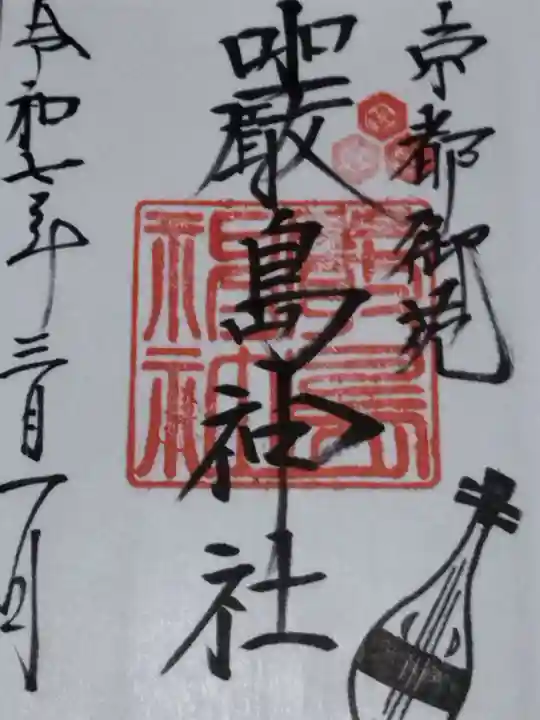 京都御苑
嚴島神社
令和七年三月一日